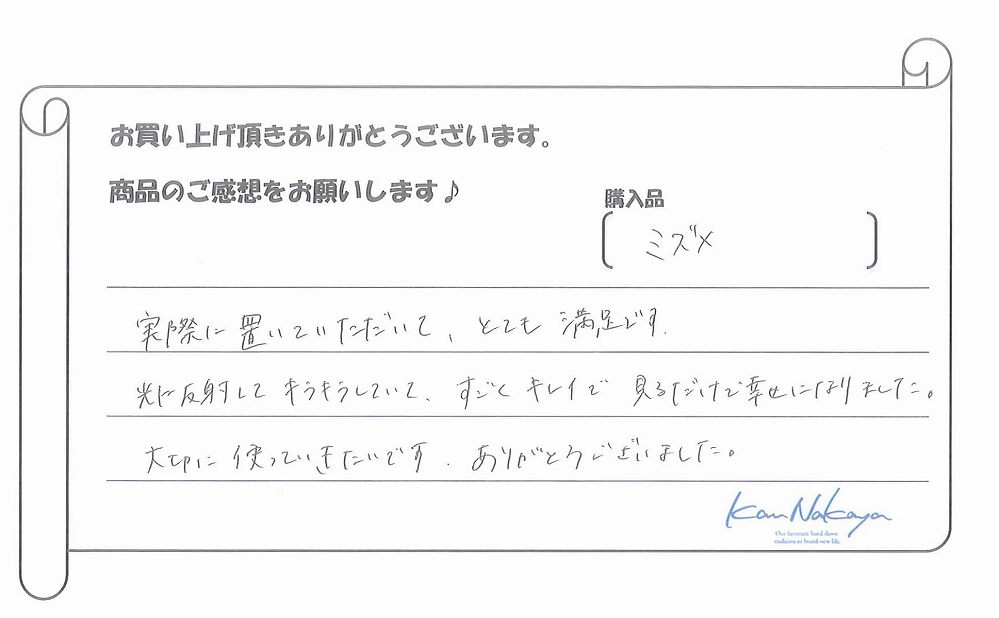 お買い上げ頂きありがとうございます。
商品のご感想をお願いします♪
購入品
ミズメ
実際に置いていただいて、とても満足です.
光に反射してキラキラしていて、すごくキレイで見るだけで幸せになりました。
大切に使っていきたいです.ありがとうございました。
Kan Nakaya
Our furniture hand down
tradition to brand-new life.